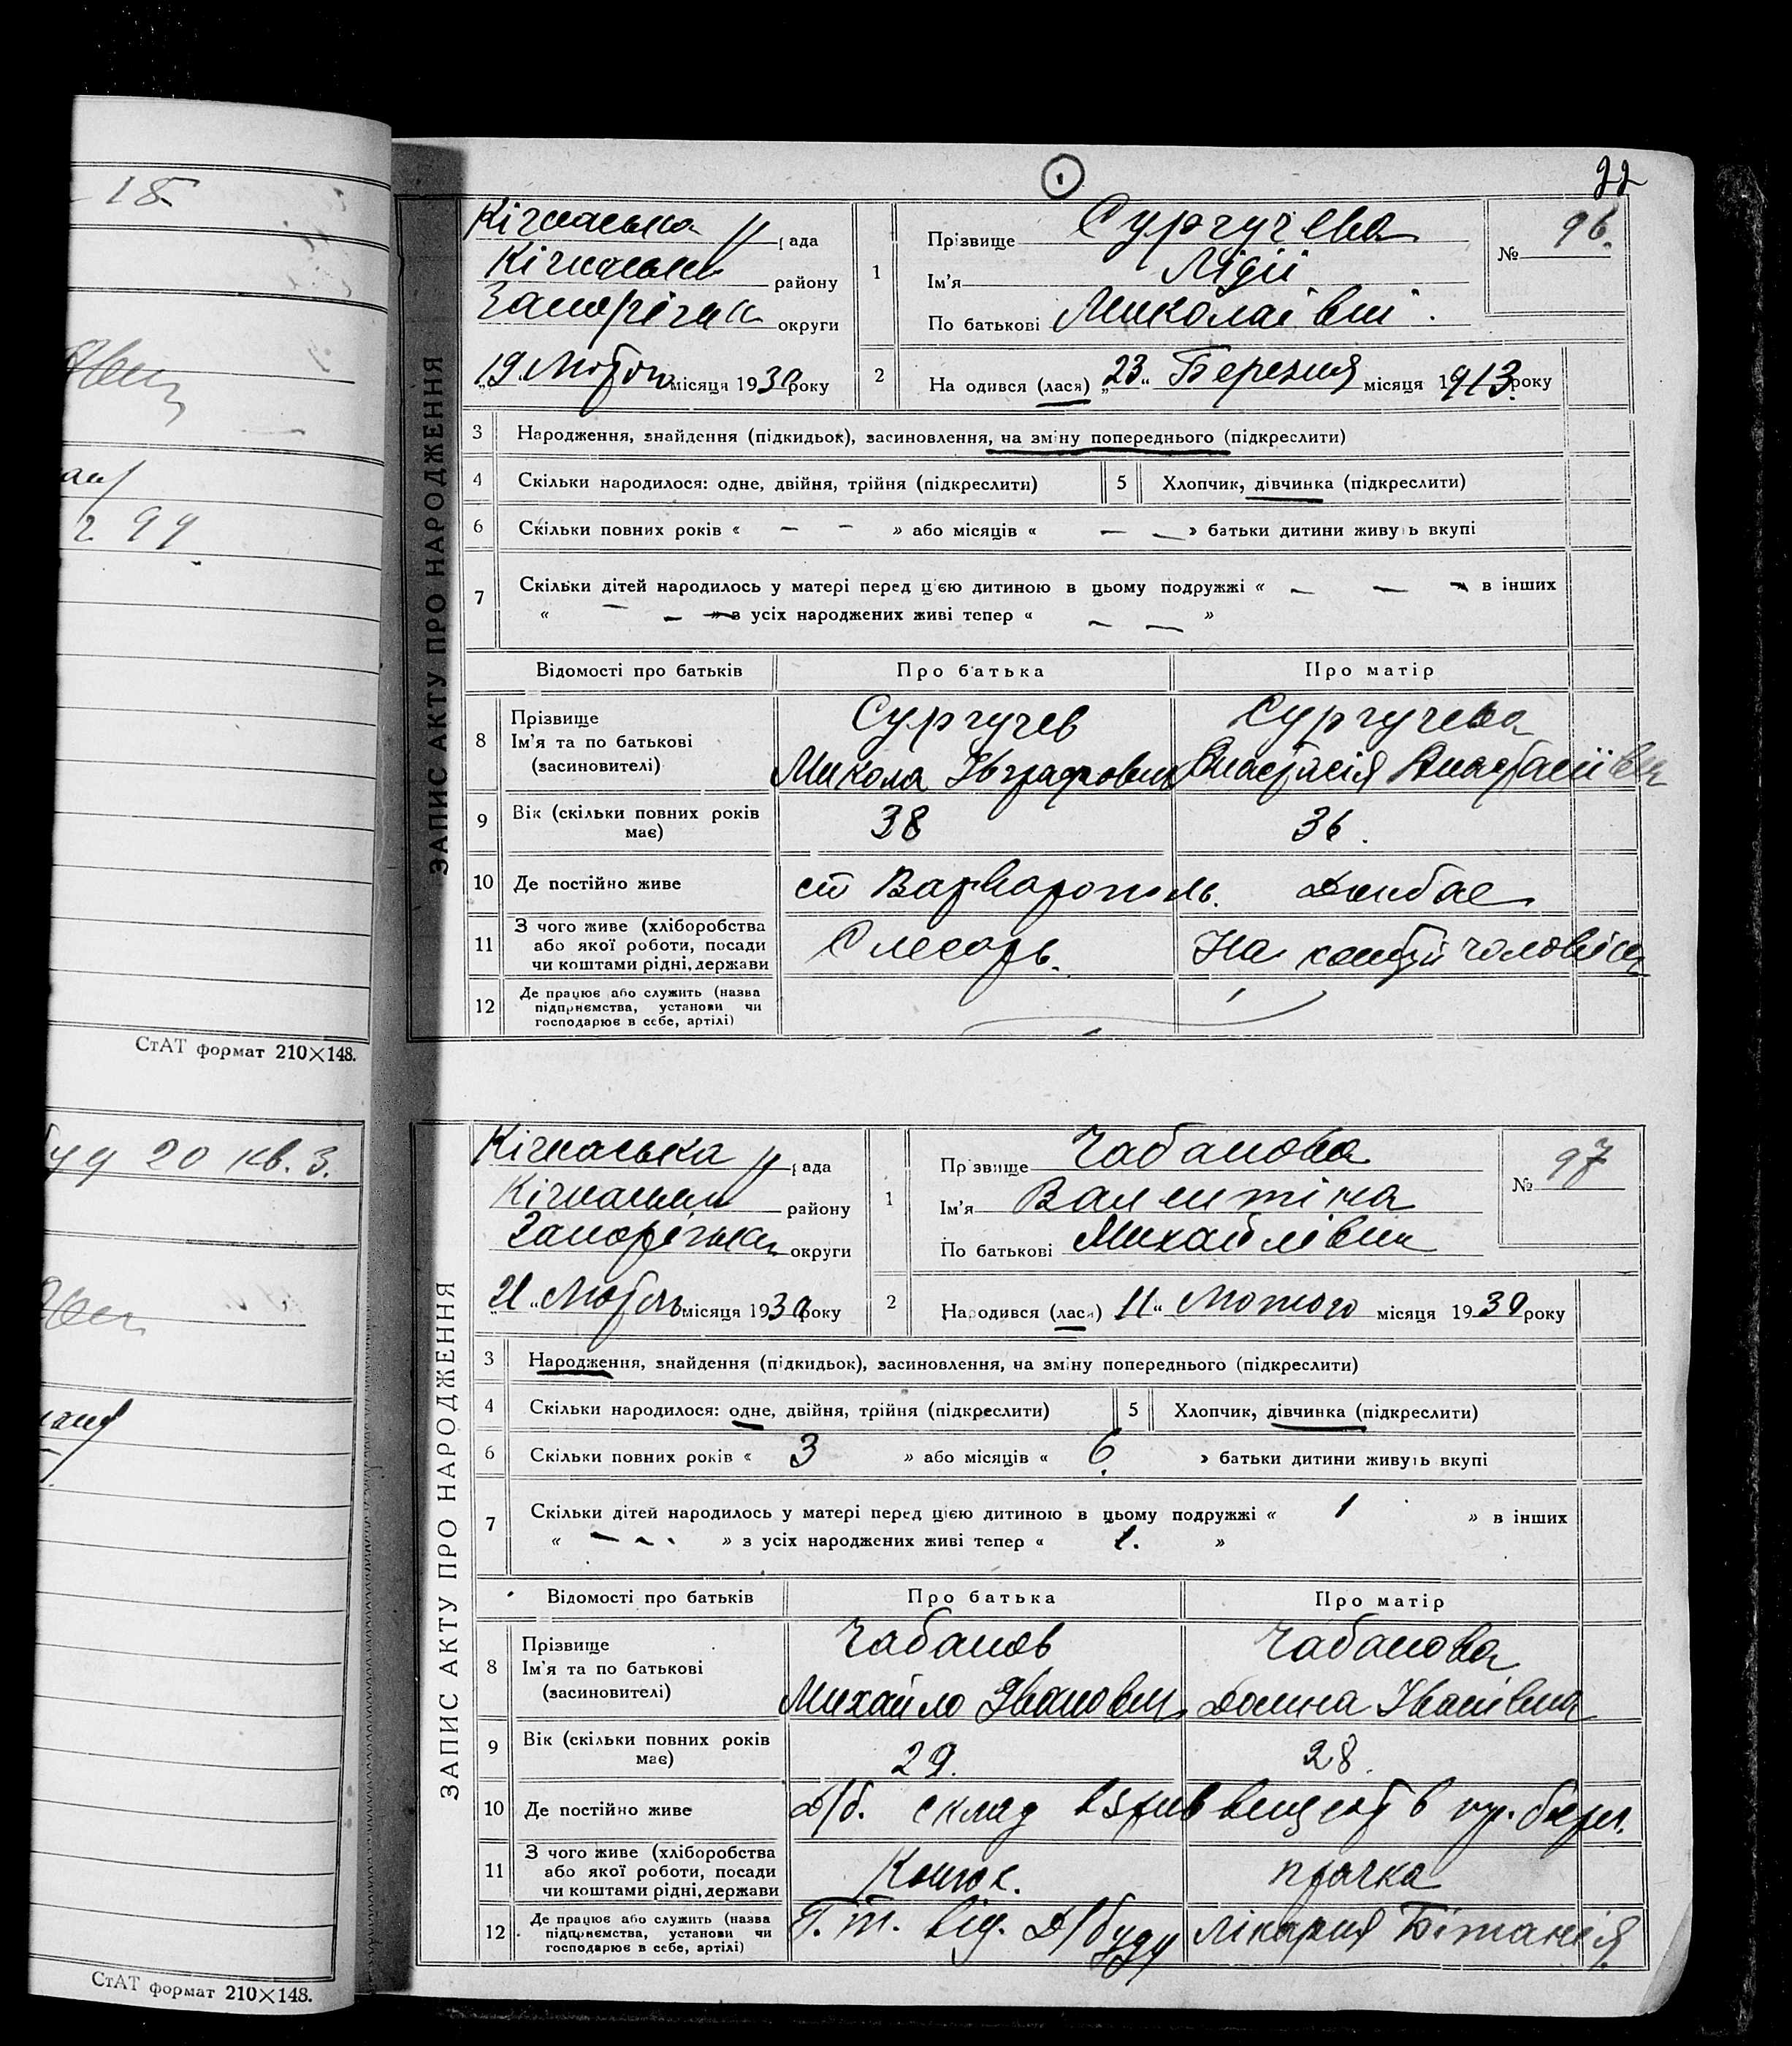 15
2 99
СтАТ формат 210×148.
20 кв. 3.
СтАТ формат 210×148.
1
22
ЗАПИС АКТУ ПРО НАРОДЖЕННЯ
Кічкаська рада
Кічкаськ району
Запорізьк округи
1
Прізвище Сургучева
Ім'я Лідії
По батькові Миколаївні.
№ 96.
„19„ Лютого місяця 1930 року
2
На одився (лася) „23„ Березня місяця 1913 року
3 Народження, знайдення (підкидьок), засиновлення, на зміну попереднього (підкреслити)
4 Скільки народилося: одне, двійня, трійня (підкреслити) 5 Хлопчик, дівчинка (підкреслити)
6 Скільки повних років « – – » або місяців « – – » батьки дитини живуть вкупі
7 Скільки дітей народилось у матері перед цією дитиною в цьому подружжі « – – » в інших
« – – » з усіх народжених живі тепер « – – »
Відомості про батьків Про батька Про матір
8 Прізвище Ім'я та по батькові (засиновителі)
Сургучев Сургучева
Микола Анастасія
9 Вік (скільки повних років має) 38 36.
10 Де постійно живе ст Варварополь. Донбас
11 З чого живе (хліборобства або якої роботи, посади чи коштами рідні, держави
Слесарь. На кошти чоловіка
12 Де працює або служить (назва підприємства, установи чи господарює в себе, артілі)
ЗАПИС АКТУ ПРО НАРОДЖЕННЯ
Кічкаська рада
Кічкаськ району
Запорізька округи
1
Прізвище Чабанова
Ім'я Валентіна
По батькові Михайлівна
№ 97
„21„ Лютого місяця 1930 року
2
Народився (лася) 11„ Лютого місяця 1930 року
3 Народження, знайдення (підкидьок), засиновлення, на зміну попереднього (підкреслити)
4 Скільки народилося: одне, двійня, трійня (підкреслити) 5 Хлопчик, дівчинка (підкреслити)
6 Скільки повних років « 3 » або місяців « 6 » батьки дитини живуть вкупі
7 Скільки дітей народилось у матері перед цією дитиною в цьому подружжі « 1 » в інших
« – – » з усіх народжених живі тепер « 1. »
Відомості про батьків Про батька Про матір
8 Прізвище Ім'я та по батькові (засиновителі)
Чабанов Чабанова
Михайло Іванович Домна Іванівна
9 Вік (скільки повних років має) 29. 28.
10 Де постійно живе Д/б. склад в пр. берег.
11 З чого живе (хліборобства або якої роботи, посади чи коштами рідні, держави
Конюх. прачка
12 Де працює або служить (назва підприємства, установи чи господарює в себе, артілі)
Г. т. від. Д/буду Лікарня Бітанія.